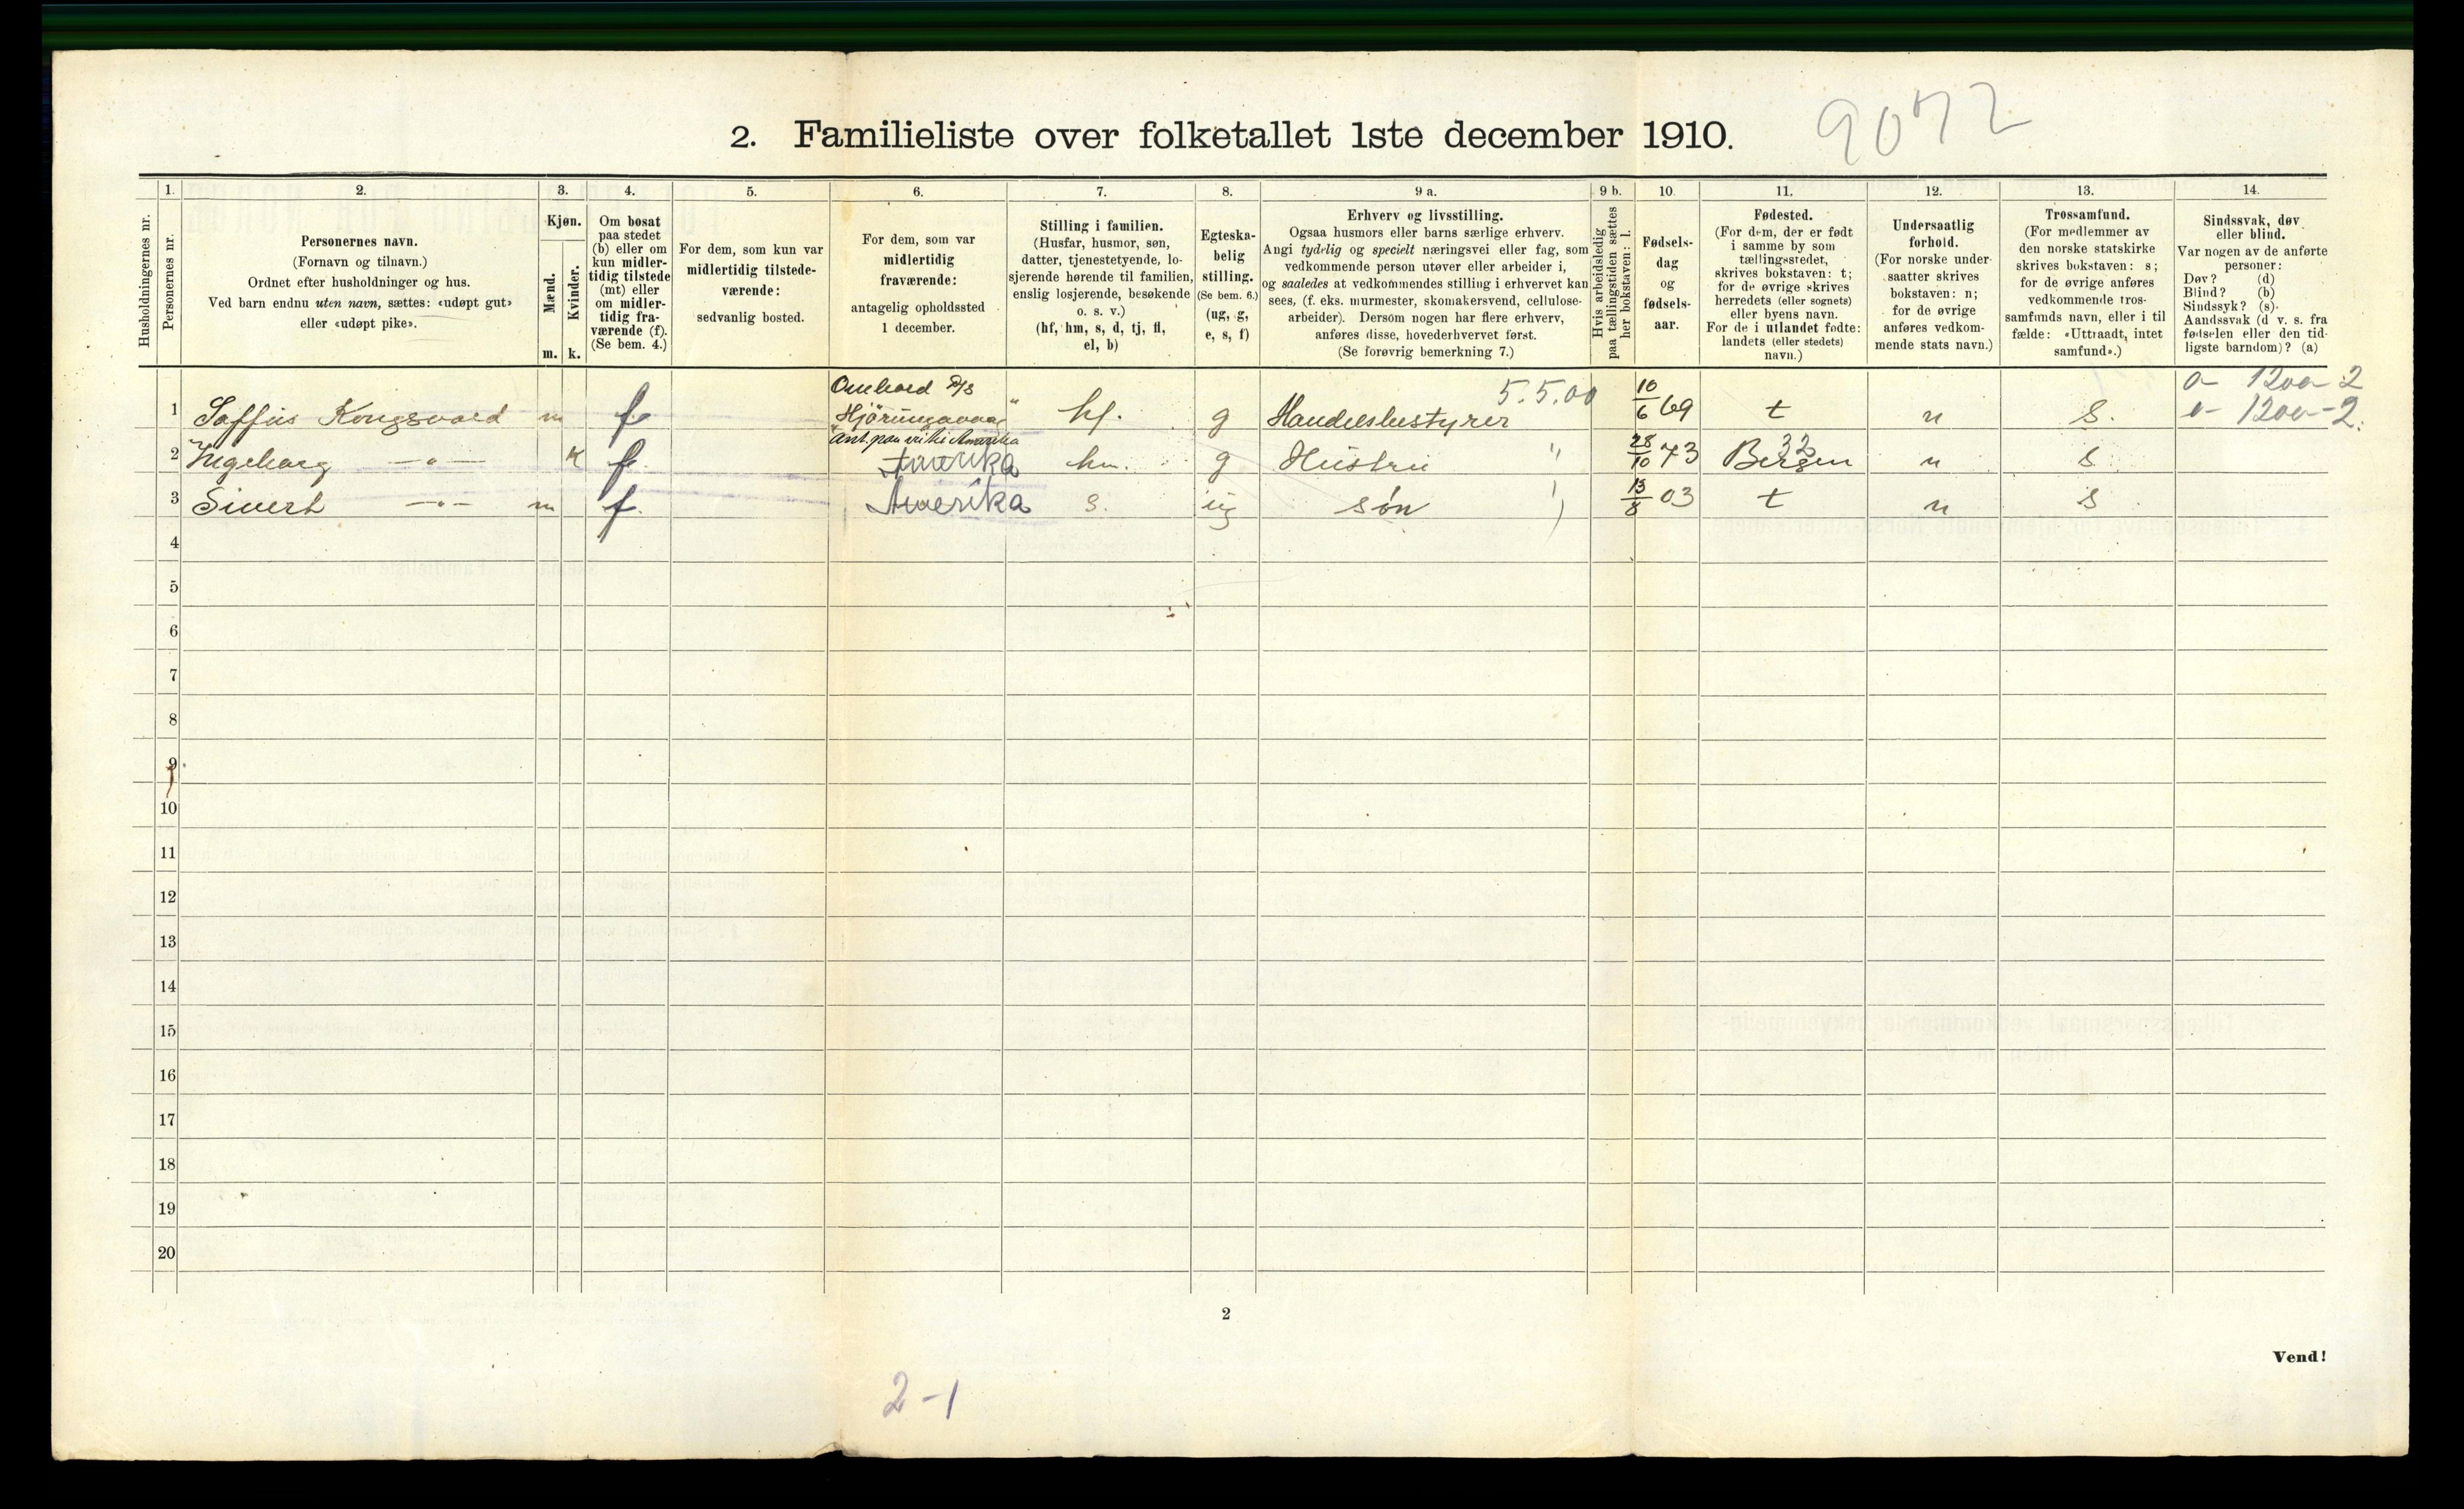 2. Familieliste over folketallet 1ste december 1910.
9072
Husholdningernes nr.
1.
Personernes nr.
2.
Personernes navn.
(Fornavn og tilnavn.)
Ordnet efter husholdninger og hus.
Ved barn endnu uten navn, sættes: «udøpt gut»
eller «udøpt pike».
3.
Kjøn.
Mænd.
Kvinder.
m. k.
4.
Om bosat
paa stedet
(b) eller om
kun midler-
tidig tilstede
(mt) eller
om midler-
tidig fra-
værende (f).
(Se bem. 4.)
5.
For dem, som kun var
midlertidig tilstede-
værende:
sedvanlig bosted.
6.
For dem, som var
midlertidig
fraværende:
antagelig opholdssted
1 december.
7.
Stilling i familien.
(Husfar, husmor, søn,
datter, tjenestetyende, lo-
sjerende hørende til familien,
enslig losjerende, besøkende
o. s. v.)
(hf, hm, s, d, tj, fl,
el, b)
8.
Egteska-
belig
stilling.
(Se bem. 6.)
(ug, g,
e, s, f)
9 a.
Erhverv og livsstilling.
Ogsaa husmors eller barns særlige erhverv.
Angi tydelig og specielt næringsvei eller fag, som
vedkommende person utøver eller arbeider i,
og saaledes at vedkommendes stilling i erhvervet kan
sees, (f. eks. murmester, skomakersvend, cellulose-
arbeider). Dersom nogen har flere erhverv,
anføres disse, hovederhvervet først.
(Se forøvrig bemerkning 7.)
9 b.
Hvis arbeidsledig
paa tællingstiden sættes
her bokstaven: l.
10.
Fødsels-
dag
og
fødsels-
aar.
11.
Fødested.
(For dem, der er født
i samme by som
tællingsstedet,
skrives bokstaven: t;
for de øvrige skrives
herredets (eller sognets)
eller byens navn.
For de i utlandet fødte:
landets (eller stedets)
navn.)
12.
Undersaatlig
forhold.
(For norske under-
saatter skrives
bokstaven: n;
for de øvrige
anføres vedkom-
mende stats navn.)
13.
Trossamfund.
(For medlemmer av
den norske statskirke
skrives bokstaven: s;
for de øvrige anføres
vedkommende tros-
samfunds navn, eller i til
fælde: «Uttraadt, intet
samfund».)
14.
Sindssvak, døv
eller blind.
Var nogen av de anførte
personer:
Døv? (d)
Blind? (b)
Sindssyk? (s).
Aandssvak (d v. s. fra
fødselen eller den tid-
ligste barndom)? (a)
1 Saffus Kongsvold m f Ombord D/S Hjörungavaag hf. g Handelsbestyrer 5.5.00 10/6 69 t n S. 0- 1200-2 e- 1200-2.
2 Ingeborg —"— k f Amerika hm. g Hustru " 28/10 73 Bergen 32 n S
3 Sivert —"— m f. Amerika s. ug søn 13/8 03 t n S
4
5
6
7
8
9
10
11
12
13
14
15
16
17
18
19
20
2
Vend!
2-1